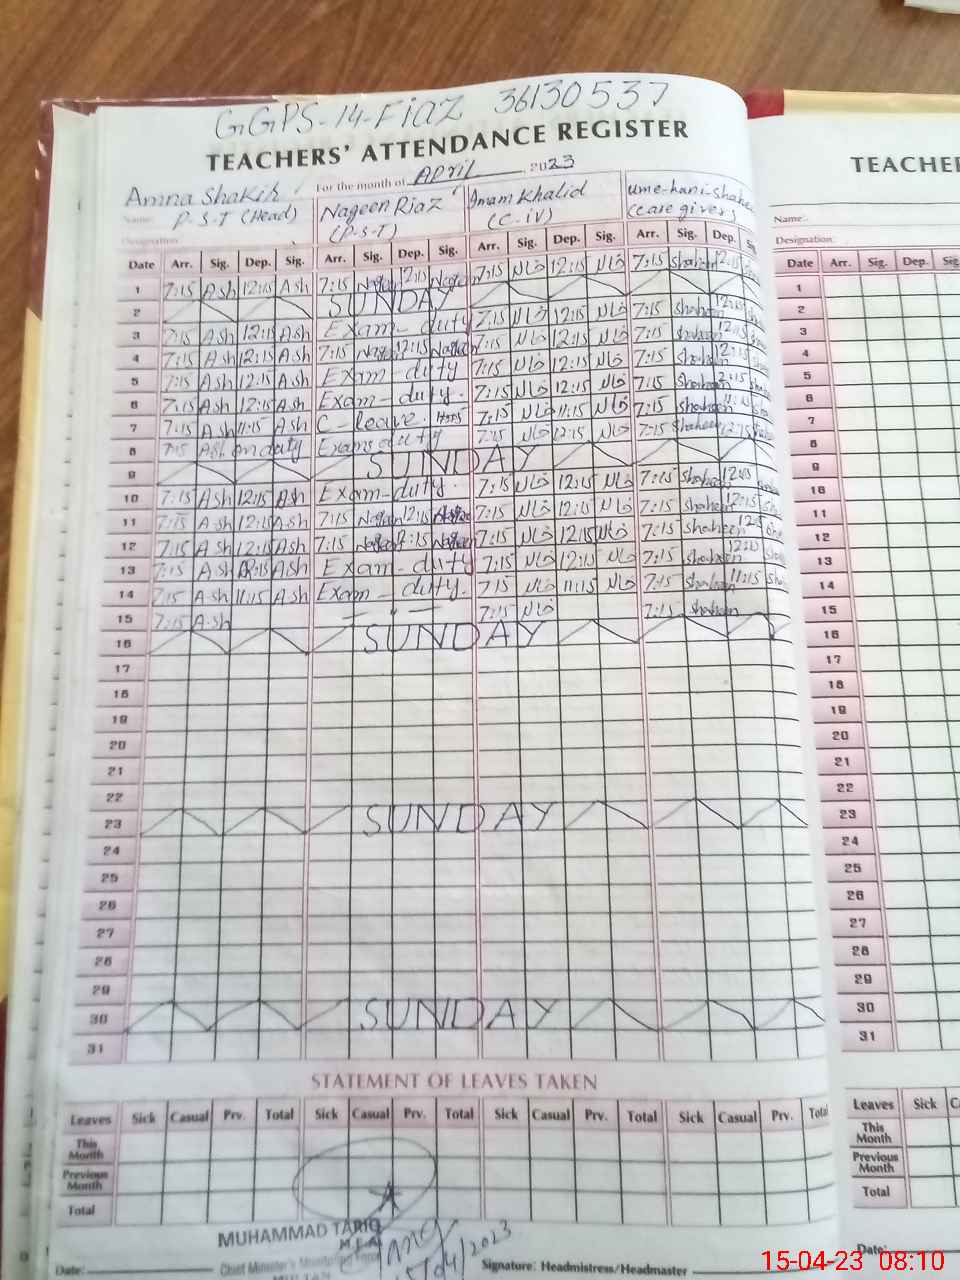 GGPS-14-Fiaz 36130537
TEACHERS' ATTENDANCE REGISTER
For the month of April, 2023
Name: Amna Shakir Nageen Riaz Imam Khalid ume-hani-shaheen
Designation: P-S-T (Head) (P-S-T) (C-iV) (care giver)
Date Arr. Sig. Dep. Sig. Arr. Sig. Dep. Sig. Arr. Sig. Dep. Sig. Arr. Sig. Dep.
1 7:15 Ash 12:15 Ash 7:15 12:15 7:15 12:15 7:15 Shaheen 12:15
2 SUNDAY
3 7:15 Ash 12:15 Ash Exam-duty 7:15 12:15 7:15 shaheen 12:15
4 7:15 Ash 12:15 Ash 7:15 12:15 7:15 12:15 7:15 shaheen 12:15
5 7:15 Ash 12:15 Ash Exam-duty 7:15 12:15 7:15 shaheen 12:15
6 7:15 Ash 12:15 Ash Exam-duty. 7:15 12:15 7:15 shaheen 12:15
7 7:15 Ash 11:15 Ash C-leave. 7:15 11:15 7:15 shaheen
8 7:15 Ash on duty Exams duty 7:15 12:15 7:15 shaheen 12:15
9 SUNDAY
10 7:15 Ash 12:15 Ash Exam-duty. 7:15 12:15 7:15 shaheen
11 7:15 Ash 12:15 Ash 7:15 12:15 7:15 12:15 7:15 shaheen 12:15
12 7:15 Ash 12:15 Ash 7:15 7:15 12:15 7:15 shaheen
13 7:15 Ash 12:15 Ash Exam-duty 7:15 12:15 7:15 shaheen
14 7:15 Ash 11:15 Ash Exam-duty. 7:15 11:15 7:15 shaheen 11:15
15 7:15 Ash — " — 7:15 7:15 shaheen
16 SUNDAY
17
18
19
20
21
22
23 SUNDAY
24
25
26
27
28
29
30 SUNDAY
31
STATEMENT OF LEAVES TAKEN
Leaves Sick Casual Prv. Total Sick Casual Prv. Total Sick Casual Prv. Total Sick Casual Prv. Total
This Month
Previous Month
Total
MUHAMMAD TARIQ
M.E.A
Chief Minister's Monitoring Force
MULTAN
Date:
15/04/2023
Signature: Headmistress/Headmaster
TEACHE
Name:
Designation:
Date Arr. Sig. Dep.
1
2
3
4
5
6
7
8
9
10
11
12
13
14
15
16
17
18
19
20
21
22
23
24
25
26
27
28
29
30
31
Leaves Sick
This Month
Previous Month
Total
Date:
15-04-23 08:10